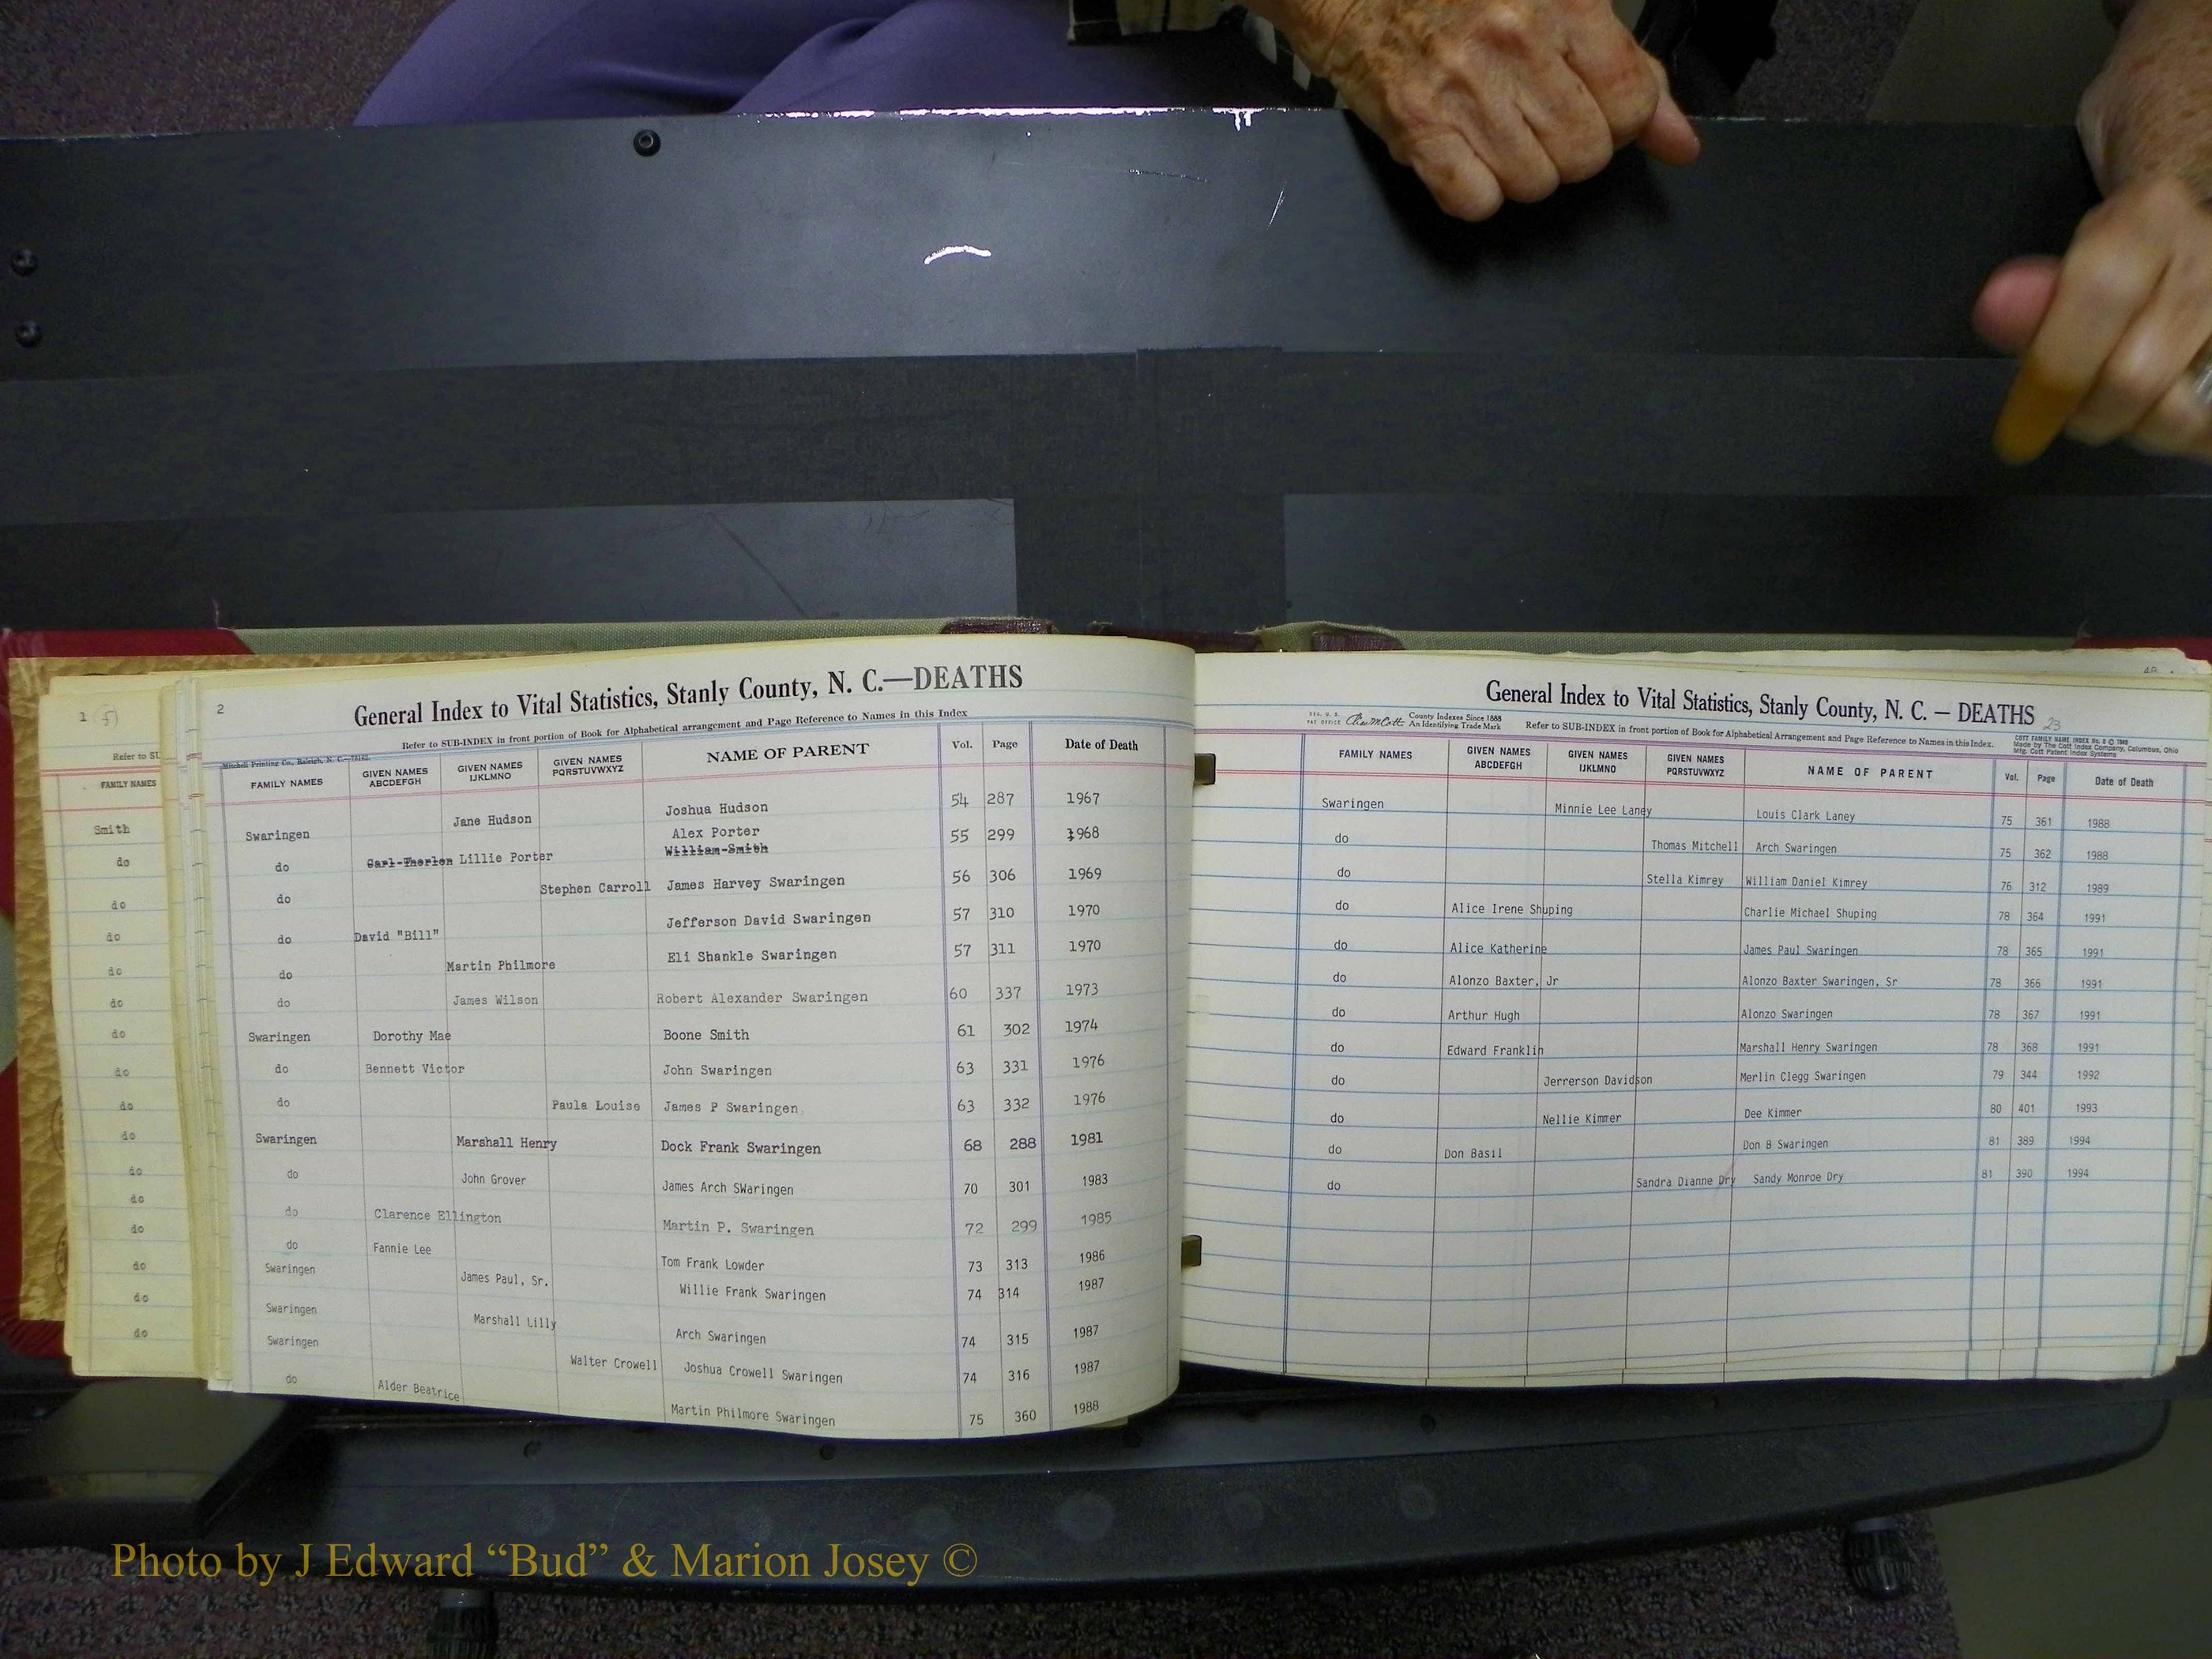 1
Refer to SU
FAMILY NAMES
Smith
do
do
do
do
do
do
do
do
do
do
do
do
do
do
do
2
General Index to Vital Statistics, Stanly County, N. C.—DEATHS
Refer to SUB-INDEX in front portion of Book for Alphabetical arrangement and Page Reference to Names in this Index
Mitchell Printing Co., Raleigh, N. C.
FAMILY NAMES GIVEN NAMES ABCDEFGH GIVEN NAMES IJKLMNO GIVEN NAMES PQRSTUVWXYZ NAME OF PARENT Vol. Page Date of Death
Swaringen Jane Hudson Joshua Hudson 54 287 1967
do Carl Therlon Lillie Porter Alex Porter 55 299 1968
William Smith
do Stephen Carroll James Harvey Swaringen 56 306 1969
do David "Bill" Jefferson David Swaringen 57 310 1970
do Martin Philmore Eli Shankle Swaringen 57 311 1970
do James Wilson Robert Alexander Swaringen 60 337 1973
Swaringen Dorothy Mae Boone Smith 61 302 1974
do Bennett Victor John Swaringen 63 331 1976
do Paula Louise James P Swaringen 63 332 1976
Swaringen Marshall Henry Dock Frank Swaringen 68 288 1981
do John Grover James Arch SWaringen 70 301 1983
do Clarence Ellington Martin P. Swaringen 72 299 1985
do Fannie Lee Tom Frank Lowder 73 313 1986
Swaringen James Paul, Sr. Willie Frank Swaringen 74 314 1987
Swaringen Marshall Lilly Arch Swaringen 74 315 1987
Swaringen Walter Crowell Joshua Crowell Swaringen 74 316 1987
do Alder Beatrice Martin Philmore Swaringen 75 360 1988
General Index to Vital Statistics, Stanly County, N. C. — DEATHS 23
REG. U. S. PAT OFFICE County Indexes Since 1888 An Identifying Trade Mark
Refer to SUB-INDEX in front portion of Book for Alphabetical Arrangement and Page Reference to Names in this Index.
COTT FAMILY NAME INDEX No. 8 ©
Made by The Cott Index Company, Columbus, Ohio
Mfg. Cott Patent Index Systems
FAMILY NAMES GIVEN NAMES ABCDEFGH GIVEN NAMES IJKLMNO GIVEN NAMES PQRSTUVWXYZ NAME OF PARENT Vol. Page Date of Death
Swaringen Minnie Lee Laney Louis Clark Laney 75 361 1988
do Thomas Mitchell Arch Swaringen 75 362 1988
do Stella Kimrey William Daniel Kimrey 76 312 1989
do Alice Irene Shuping Charlie Michael Shuping 78 364 1991
do Alice Katherine James Paul Swaringen 78 365 1991
do Alonzo Baxter, Jr Alonzo Baxter Swaringen, Sr 78 366 1991
do Arthur Hugh Alonzo Swaringen 78 367 1991
do Edward Franklin Marshall Henry Swaringen 78 368 1991
do Jerrerson Davidson Merlin Clegg Swaringen 79 344 1992
do Nellie Kimmer Dee Kimmer 80 401 1993
do Don Basil Don B Swaringen 81 389 1994
do Sandra Dianne Dry Sandy Monroe Dry 81 390 1994
Photo by J Edward “Bud” & Marion Josey ©